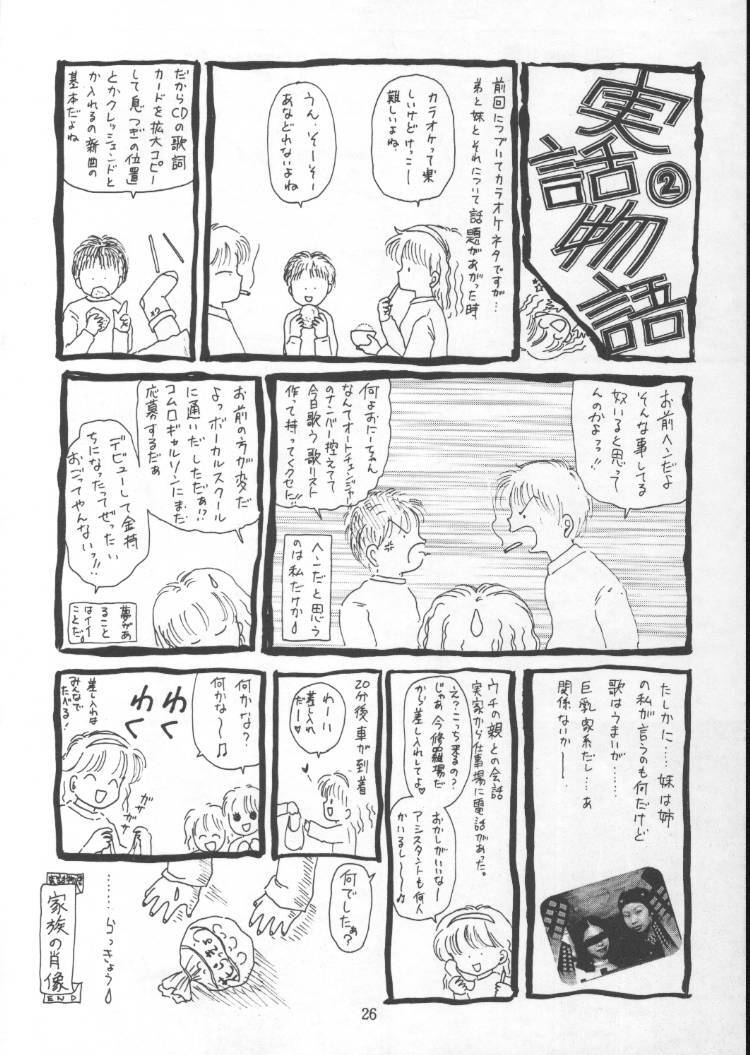 実話物語
②
前回につづいてカラオケネタですが…
弟と妹とそれについて話題があがった時
カラオケって楽
しいけどけっこー
難しいよね
うん、そーそー
あなどれないよね
だからCDの歌詞
カードを拡大コピー
して息つぎの位置
とかクレッシェンドと
か入れるの新曲の
基本だよね
お前ヘンだよ
そんな事してる
奴いると思って
んのかよっ!!
何よおにーちゃん
なんてオートチェンジャー
のナンバー控えてて
今日歌う歌リスト
作って持ってくクセに!!
ヘンだと思う
のは私だけか
お前の方が変だ
よっボーカルスクール
に通いだしただぁ!?
コムロギャルソンにまだ
応募するだぁ
デビューして金持
ちになったってぜったい
おごってやんないっ!!
夢があ
ること
はイイ
ことだ。
たしかに……妹は姉
の私が言うのも何だけど
歌はうまいが………
巨乳家系だし…ぁ
関係ないか〜
ウチの親との会話
実家から仕事場に電話があった。
え?こっち来るの?
じゃあ今修羅場だ
から差し入れしてよ♡
おかしがいいなー
アシスタントも何人
かいるし〜〜
20分後車が到着
わーい
差し入れ
だー♡
何かな?
何かな〜♫
わく
わく
差し入れは
みんなで
たべる!
ガサ
ガサ
何でしたぁ?
……らっきょう
家族の肖像
END
26